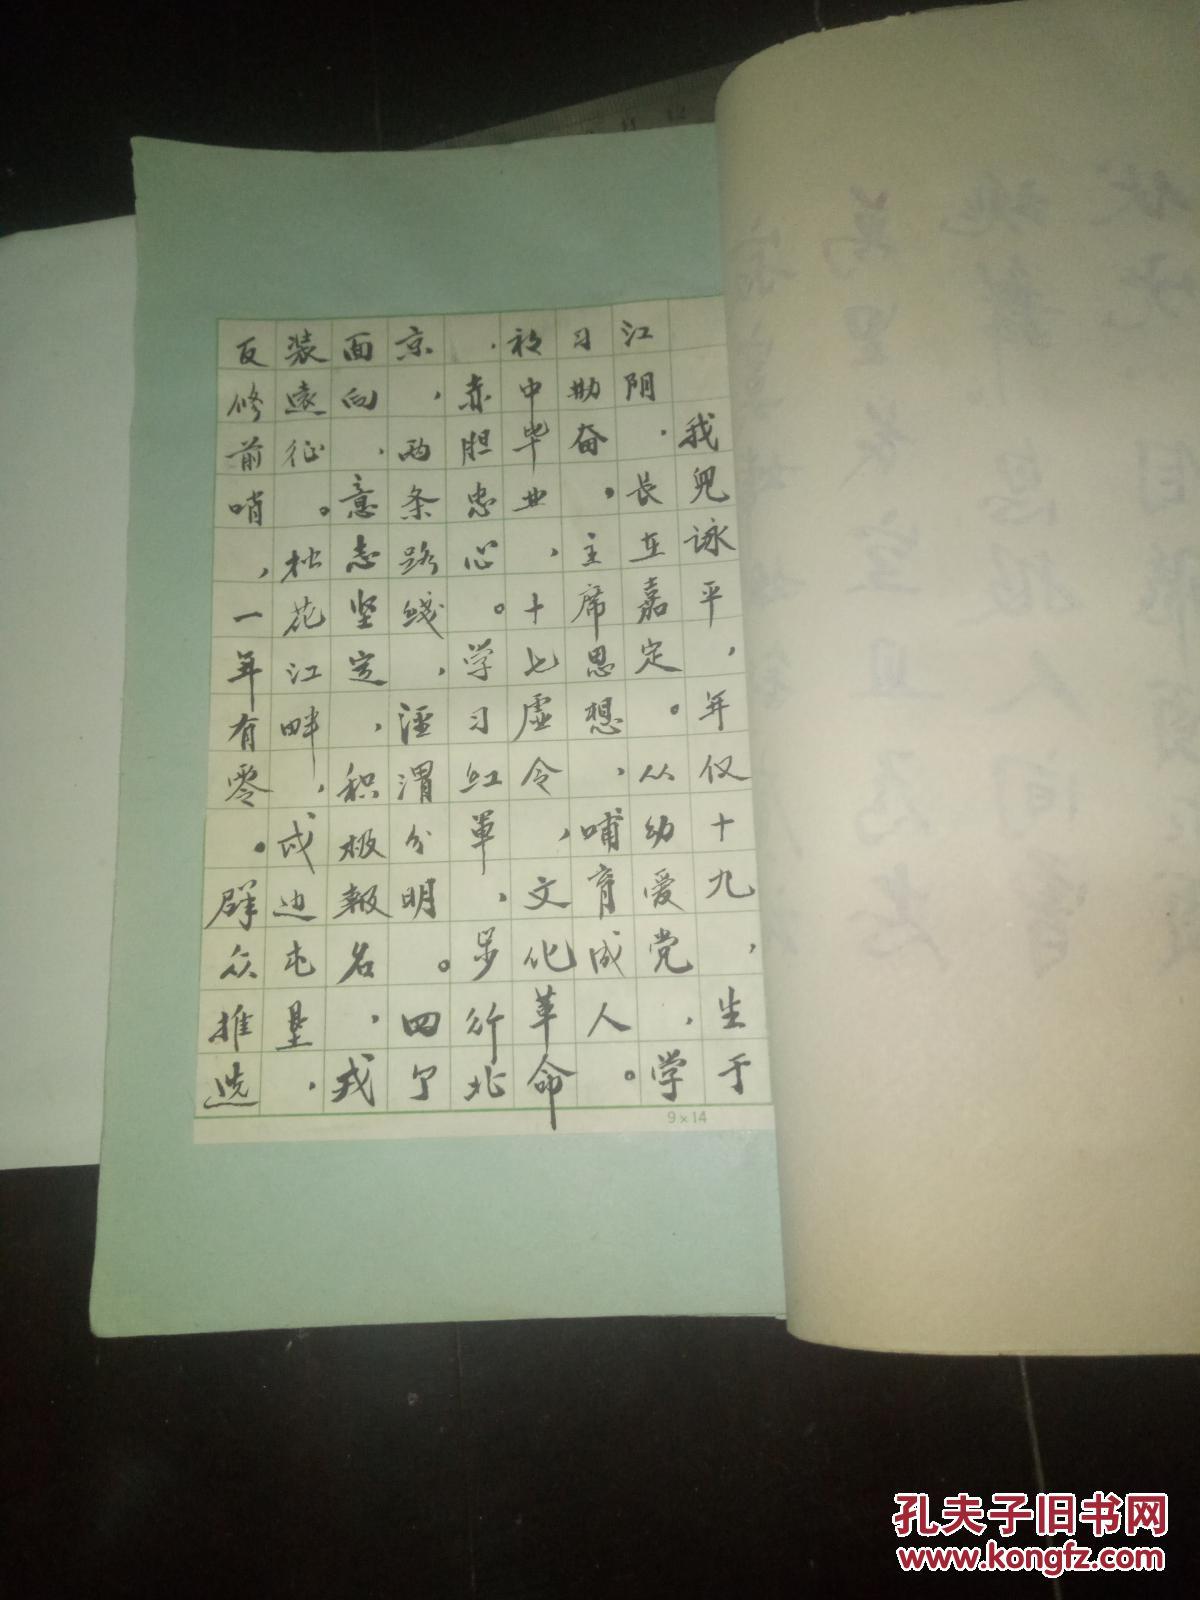 我兒詠平，年仅十九，生于
江阴，長在嘉定。从幼爱党，学
习勤奋。主席思想，哺育成人。
初中毕业，十七虚令，文化革命
，赤胆忠心。学习红軍，步行北
京，两条路线，泾渭分明。四个
面向，意志坚定，积极報名，戎
装遠征。松花江畔，戍边屯垦，
反修前哨，一年有零。群众推选
9×14
孔夫子旧书网
www.kongfz.com